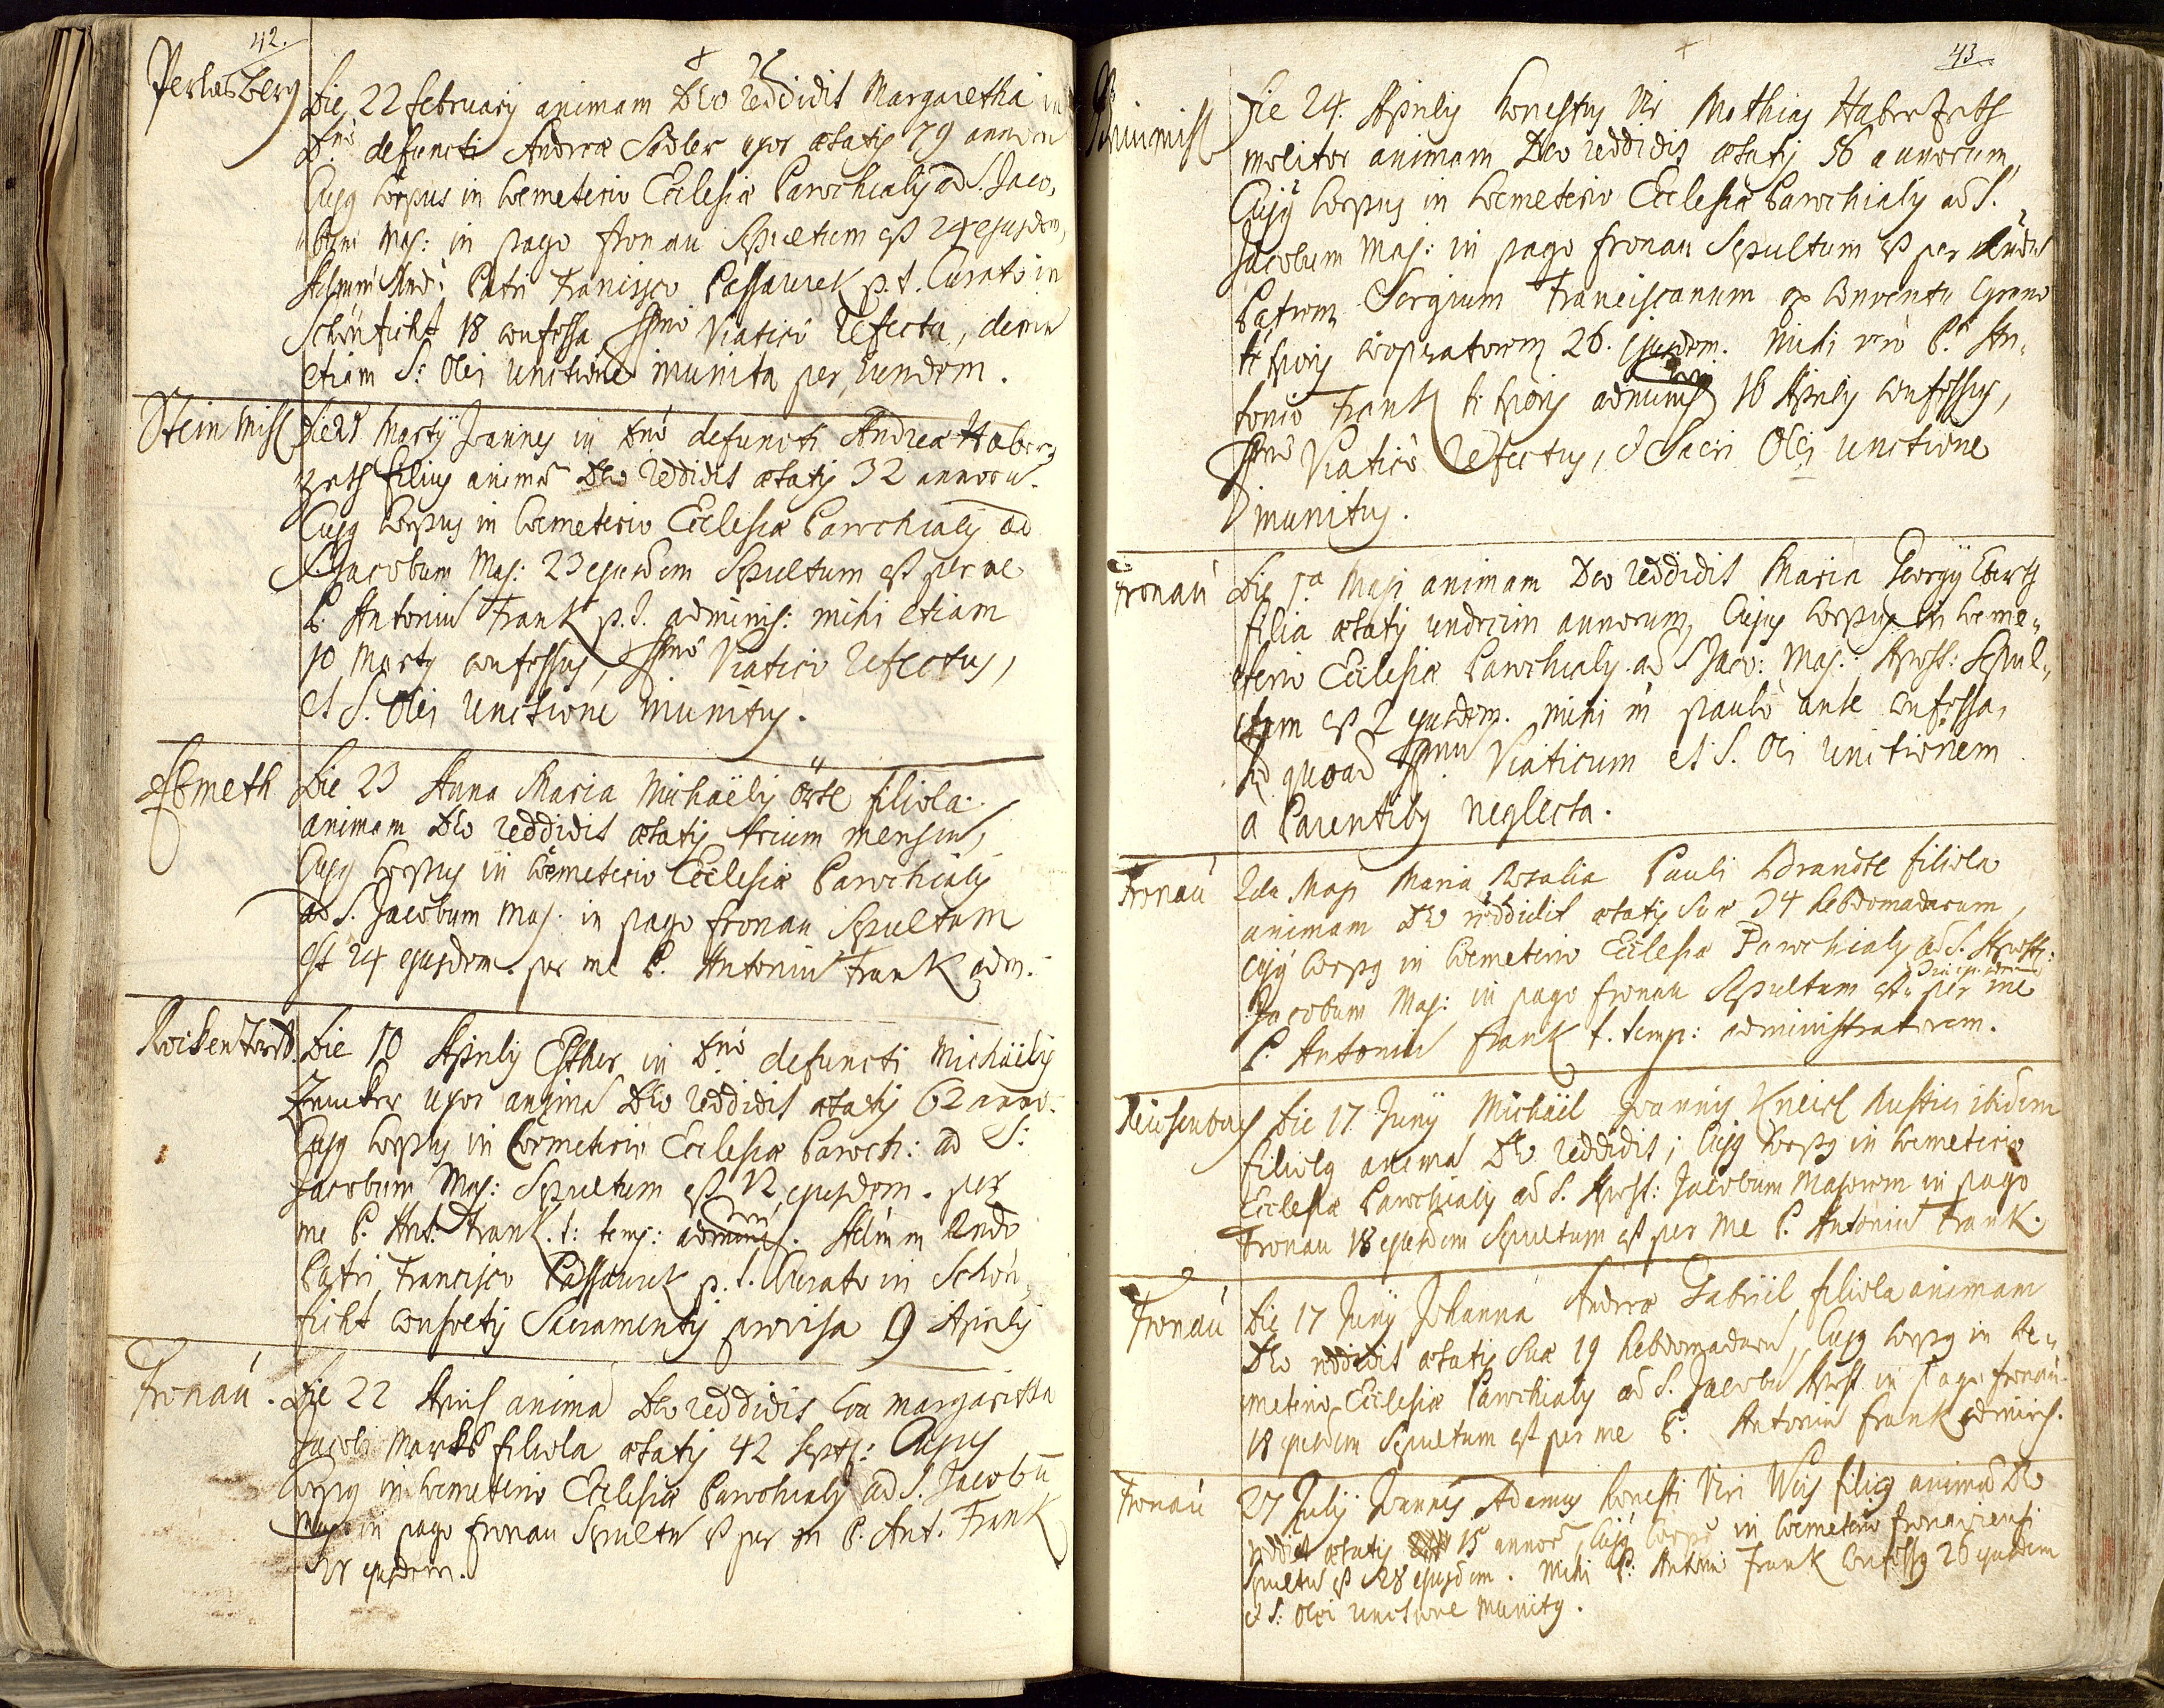 42.
Perlasberg Die 22 february animam Deo reddidit Margaretha in
Dno defuncti Andreæ Sadler uxor ætatis 79 annorum
Cujus Corpus in Cœmeterio Ecclesiæ Parochialis ad S. Jaco,
bum Maj: in pago fronau Sepultum est 24 ejusdem,
Patri Francisco Passaurek p. t. Curato in
Schönficht 18 confessa Ssmo Viatico refecta, demum
etiam S: Olei Unctione munita per eundem.
Stein Mihl Die 21 Martÿ Joannes in Dno defuncti Andreæ Haber,
zeth filius animã Deo reddidit ætatis 32 annorũ.
Cujus Corpus in Cœmeterio Ecclesiæ Parochialis ad
S. Jacobum Maj: 23 ejusdem Sepultum est per me
P. Antoniũ Frank p. t. adminis: mihi etiam
10 Martÿ confessus, Ssmo Viatico refectus,
et S. Olei Unctione munitus.
Ebmeth Die 23 Anna Maria Michaëlis Örtl filiola
animam Deo reddidit ætatis trium mensiũ,
Cujus Corpus in Cœmeterio Ecclesiæ Parochialis
ad S. Jacobum Maj. in pago fronau Sepultum
est 24 ejusdem. per me P. Antoniũ Frank adm.
Rockendorf. Die 10 Aprilis Esther in Dno defuncti Michäelis
uxor animã Deo reddidit ætatis 62 anno.
Cujus Corpus in Cœmeterio Ecclesiæ Paroch: ad S:
Jacobum Maj: Sepultum est 12 ejusdem. per
me P. Ant. Frank. t: temp: adminis. Rndo
Patri Francisco Passaurek p. t. Curato in Schön,
ficht consuetis Sacramentis provisa 9 Aprilis
Fronaú. Die 22 April animã Deo reddidit Eva Margaritha
Jacobi Marks filiola ætatis 42 Sept: Cujus
Corpus in Cœmeterio Ecclesiæ Parochialis ad S. Jacobũ
Maj: in pago fronau Sepultũ est per me P. Ant. Frank
ejusdem.
43
Die 24. Aprilis honestus Vir Mathias Haberzeth
molitor animam Deo reddidit ætatis 56 annorum,
Cujus Corpus in Cœmeterio Ecclesiæ Parochialis ad S.
Jacobum Maj: in pago fronau Sepultum est per Rndum
Patrem Sergium Franciscanum ex Conventu
Cooperatorem 26. ejusdem. Mihi verò P. An,
tonio Frank adminis 16 Aprilis confessus,
Ssmo Viaticò refectus, et Sacri Olei Unctione
munitus.
Fronaú Die 1.a Maji animam Deo reddidit Maria Georgÿ
filia ætatis undecim annorum, Cujus Corpus in Cœme,
terio Ecclesiæ Parochialis ad S. Jaco: Maj: Apost: Sepul,
tum est 2 ejusdem. mihi paulò ante confessa,
Sed quoad Ssmũ Viaticum et S. Olei Unctionem
a Parentibus neglecta.
Fronaú 2da Maji Maria Rosalia Pauli Brandtl filiola
animam Deo reddidit ætatis suæ 34 hebdomadarum,
Cujus Corpus in Cœmeterio Ecclesiæ Parochialis ad S. Apost:
Jacobum Maj: in pago fronau Sepultum est per me
P. Antoniũ Frank t. temp: administratorem.
Die 17 Junÿ Michäel Joannis Kneisl Rustici ibidem
filiolus animã Deo reddidit; Cujus Corpus in Cœmeterio
Ecclesiæ Parochialis ad S. Apost: Jacobum Majorem in pago
Fronau 18 ejusdem Sepultum est per me P. Antoniũ Frank.
Fronaú Die 17 Junÿ Johanna Andreæ Gabriel filiola animam
Deo reddidit ætatis suæ 19 hebdomadarũ, Cujus Corpus in Cœ,
meterio Ecclesiæ Parochialis ad S. Jacobũ Apost in pago fronaú
18 ejusdem Sepultum est per me P. Antoniũ Frank adminis.
Fronaú 27 Julÿ Joannes Adamus honesti Viri Weis filius animã Deo
reddidit ætatis 15 annorũ, Cujus Corpus in Cœmeterio fronaviensi
Sepultũ est 28 ejusdem. Mihi P: Antonio Frank Confessus 26 ejusdem
et S: Olei Unctione munitus.